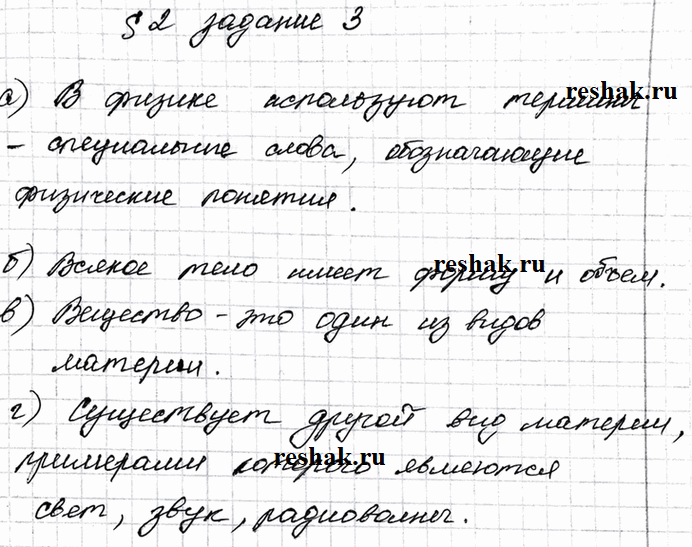 § 2 задание 3
а) В физике используют термины
reshak.ru
- специальные слова, обозначающие
физические понятия.
б) Всякое тело имеет форму и объем.
reshak.ru
в) Вещество - это один из видов
материи.
г) Существует другой вид материи,
примерами которого являются
reshak.ru
свет, звук, радиоволны.